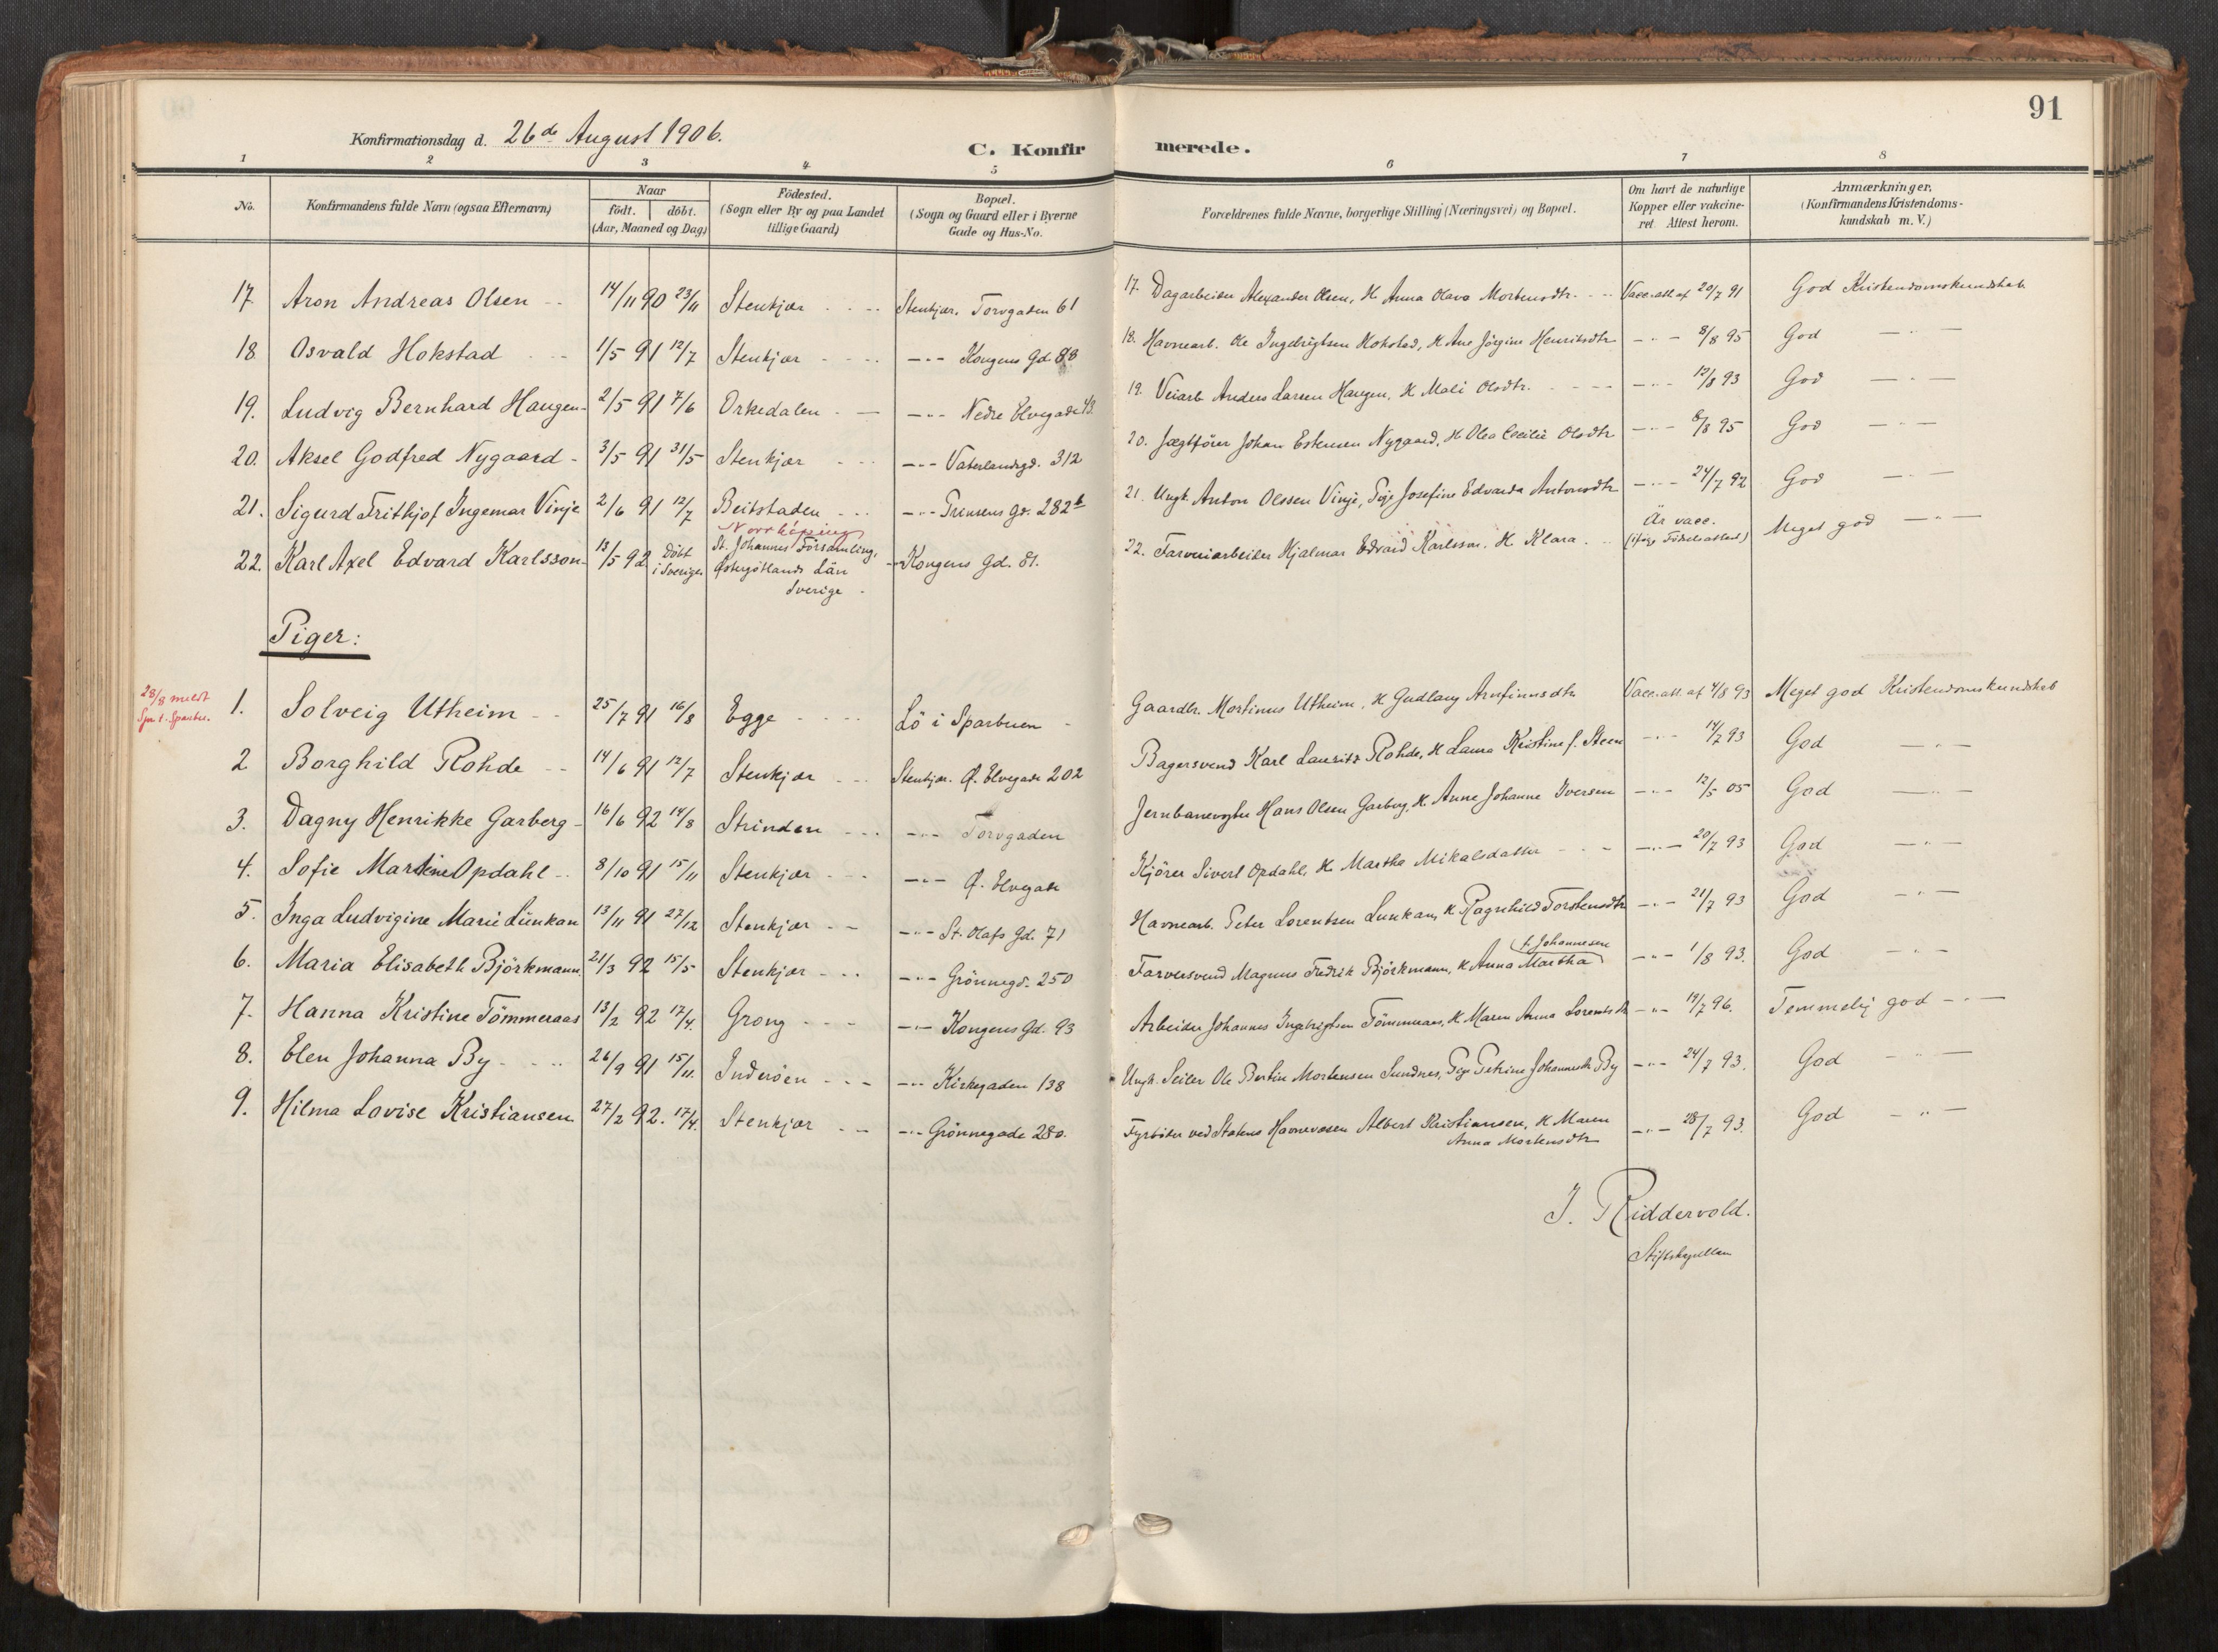 91
Konfirmationsdag d. 26de August 1906.
C. Konfirmerede.
1 2 3 4 5 6 7 8
No. Konfirmandens fulde Navn (ogsaa Efternavn) Naar födt. döbt. (Aar, Maaned og Dag) Födested. (Sogn eller By og paa Landet tillige Gaard) Bopæl. (Sogn og Gaard eller i Byerne Gade og Hus-No. Forældrenes fulde Navne, borgerlige Stilling (Næringsvei) og Bopæl. Om havt de naturlige Kopper eller vakcineret. Attest herom. Anmærkninger. (Konfirmandens Kristendomskundskab m. V.)
17. Aron Andreas Olsen 14/11 90 23/11 Stenkjær Stenkjær. Torvgaden 61 17. Dagarbeider Alexander Olsen, H. Anna Olava Mortensdtr. Vacc. att. af 20/7 91 God Kristendomskundskab
18 Osvald Hokstad 1/5 91 12/7 Stenkjær —"— Kongens Gd 88 18. Havnearb. Ole Ingebrigtsen Hokstad, H. Ane Jörgine Henriksdtr —"— 8/8 95 God —"—
19. Ludvig Bernhard Haugen 2/5 91 7/6 Orkedalen —"— Nedre Elvegade 43. 19. Veiarb. Anders Larsen Haugen, H. Mali Olsdtr. —"— 12/8 93 God —"—
20. Aksel Godfred Nygaard 3/5 91 31/5 Stenkjær —"— Vaterlandsgd. 312 20. Jægtfører Johan Estensen Nygaard, H. Olea Cecilie Olsdtr —"— 8/8 95 God —"—
21. Sigurd Frithjof Ingemar Vinje 2/6 91 12/7 Beitstaden —"— Prinsens Gd. 282b 21. Ungk. Anton Olsen Vinje, Pige Josefine Edvarda Antonsdtr —"— 24/7 92 God —"—
22. Karl Axel Edvard Karlsson 13/5 92 Döbt i Sverige Norrköping St. Johannes Församling. Östergötlands Län Sverige —"— Kongens Gd. 81. 22. Farveriarbeider Hjalmar Edvard Karlsson, H. Klara. Är vacc. (ifölge Födselsattest) Meget god —"—
Piger:
28/8 meldt Spr. t. Sparbu.
1. Solveig Utheim 25/7 91 16/8 Egge Lö i Sparbuen Gaardbr. Mortinus Utheim, H. Gudlaug Arnfinnsdtr Vacc. att. af 4/8 93 Meget god Kristendomskundskab
2. Borghild Rohde 14/6 91 12/7 Stenkjær Stenkjær. Ø. Elvegade 202 Bagersvend Karl Lauritz Rohde, H. Laura Kristine f. Steen —"— 14/7 93 God —"—
3. Dagny Henrikke Garberg 16/6 92 14/8 Strinden —"— Torvgaden Jernbanevogter Hans Olsen Garberg, H. Anne Johanne Iversen —"— 12/5 05 God —"—
4. Sofie Martine Opdahl 8/10 91 15/11 Stenkjær —"— Ø. Elvegade Kjörer Sivert Opdahl, H. Martha Mikalsdatter —"— 20/7 93 God —"—
5. Inga Ludvigine Marie Lünkan 13/11 91 27/12 Stenkjær —"— St. Olafs Gd. 71 Havnearb. Peter Lorentsen Lunkan, H. Ragnhild Torstensdtr —"— 21/7 93 God —"—
6. Maria Elisabeth Björkmann. 21/3 92 15/5 Stenkjær —"— Grönnegd. 250 Farversvend Magnus Fredrik Björkmann, H. Anna Martha f. Johannesen —"— 1/8 93. God —"—
7. Hanna Kristine Tömmeraas 13/2 92 17/4. Grong —"— Kongens Gd. 93 Arbeider Johannes Ingebrigtsen Tömmeraas, H. Maren Anna Lorentsdtr —"— 19/7 96. Temmelig god —"—
8. Elen Johanna By 26/9 91 15/11. Inderöen —"— Kirkegaden 138 Ungk. Seiler Ole Bertin Mortensen Sundnes, Pige Petrine Johannesdtr By —"— 24/7 93. God —"—
9. Hilma Lovise Kristiansen 27/2 92. 17/4. Stenkjær —"— Grönnegade 280. Fyrböter ved Statens Havnevæsen Albert Kristiansen, H. Maren Anna Mortensdtr —"— 28/7 93. God —"—
J. Riddervold.
Stiftskapellan